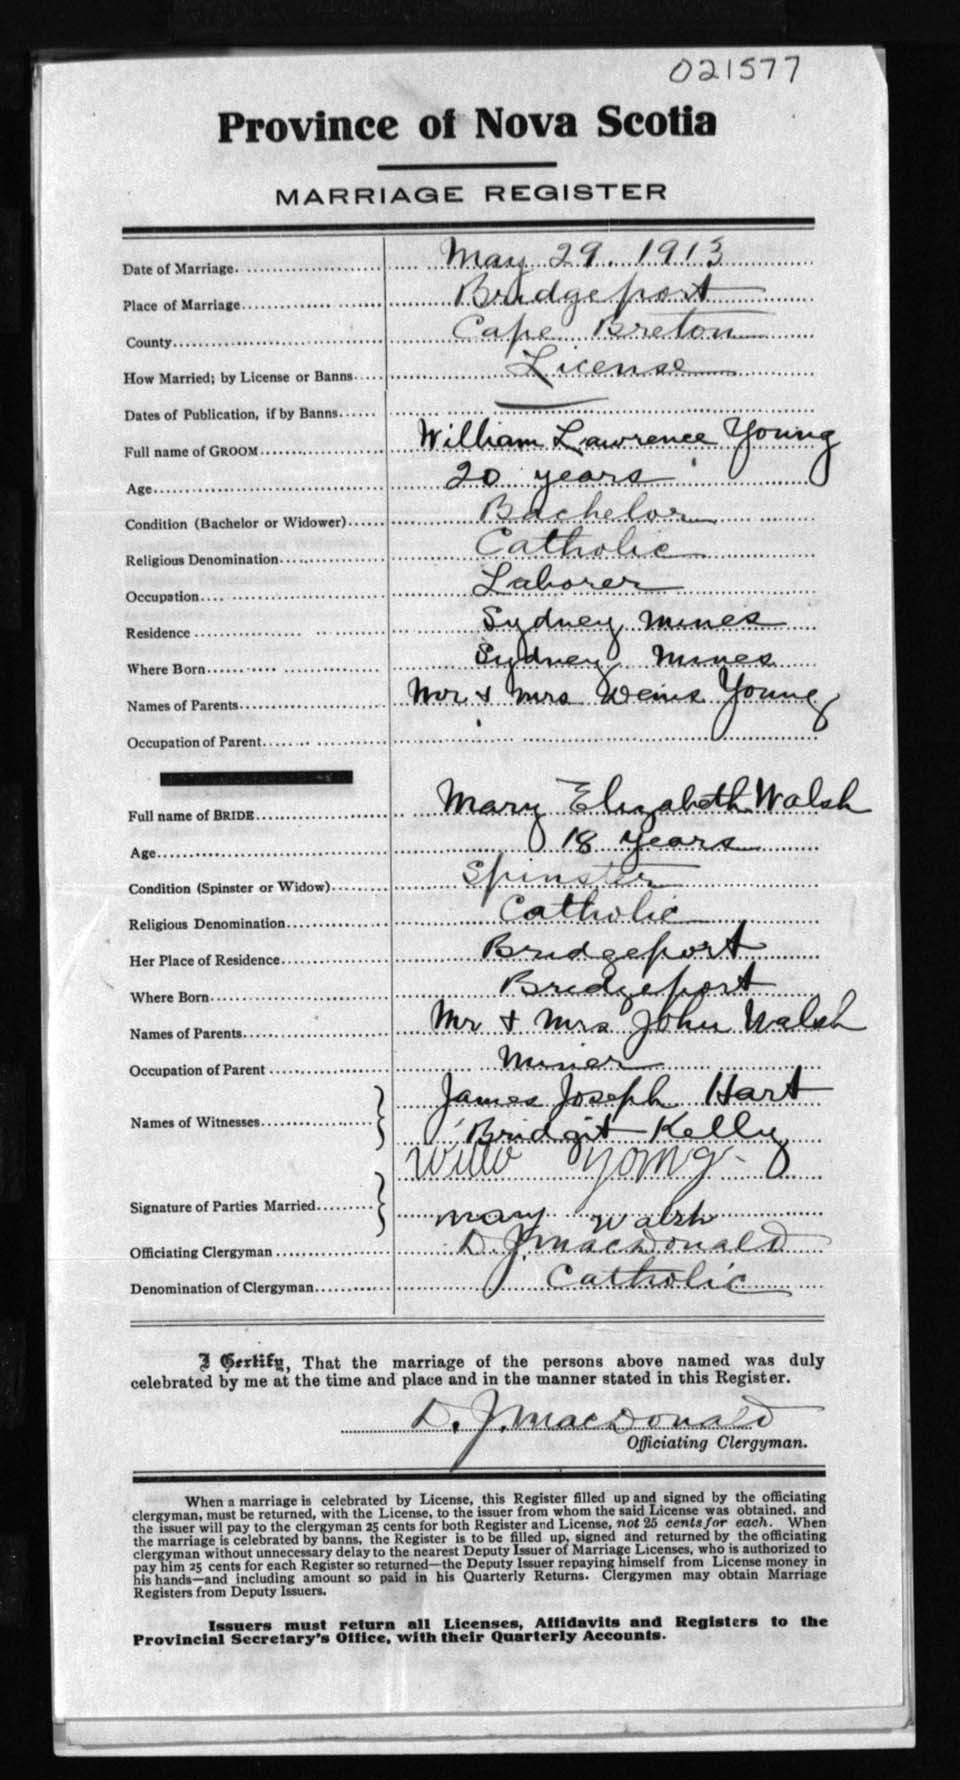 021577
Province of Nova Scotia
MARRIAGE REGISTER
Date of Marriage. May 29. 1913
Place of Marriage Bridgeport
County Cape Breton
How Married; by License or Banns License
Dates of Publication, if by Banns
Full name of GROOM William Lawrence Young
Age 20 years
Condition (Bachelor or Widower) Bachelor
Religious Denomination Catholic
Occupation Laborer
Residence Sydney Mines
Where Born Sydney Mines
Names of Parents Mr & Mrs Young
Occupation of Parent
Full name of BRIDE Mary Elizabeth Walsh
Age 18 years
Condition (Spinster or Widow) Spinster
Religious Denomination Catholic
Her Place of Residence Bridgeport
Where Born Bridgeport
Names of Parents Mr & Mrs John Walsh
Occupation of Parent Miner
Names of Witnesses James Joseph Hart
Bridgit Kelly
Young
Signature of Parties Married Mary Walsh
Officiating Clergyman D. J. MacDonald
Denomination of Clergyman Catholic
I Certify, That the marriage of the persons above named was duly
celebrated by me at the time and place and in the manner stated in this Register.
D. J. MacDonald
Officiating Clergyman.
When a marriage is celebrated by License, this Register filled up and signed by the officiating
clergyman, must be returned, with the License, to the issuer from whom the said License was obtained, and
the issuer will pay to the clergyman 25 cents for both Register and License, not 25 cents for each. When
the marriage is celebrated by banns, the Register is to be filled up, signed and returned by the officiating
clergyman without unnecessary delay to the nearest Deputy Issuer of Marriage Licenses, who is authorized to
pay him 25 cents for each Register so returned—the Deputy Issuer repaying himself from License money in
his hands—and including amount so paid in his Quarterly Returns. Clergymen may obtain Marriage
Registers from Deputy Issuers.
Issuers must return all Licenses, Affidavits and Registers to the
Provincial Secretary's Office, with their Quarterly Accounts.